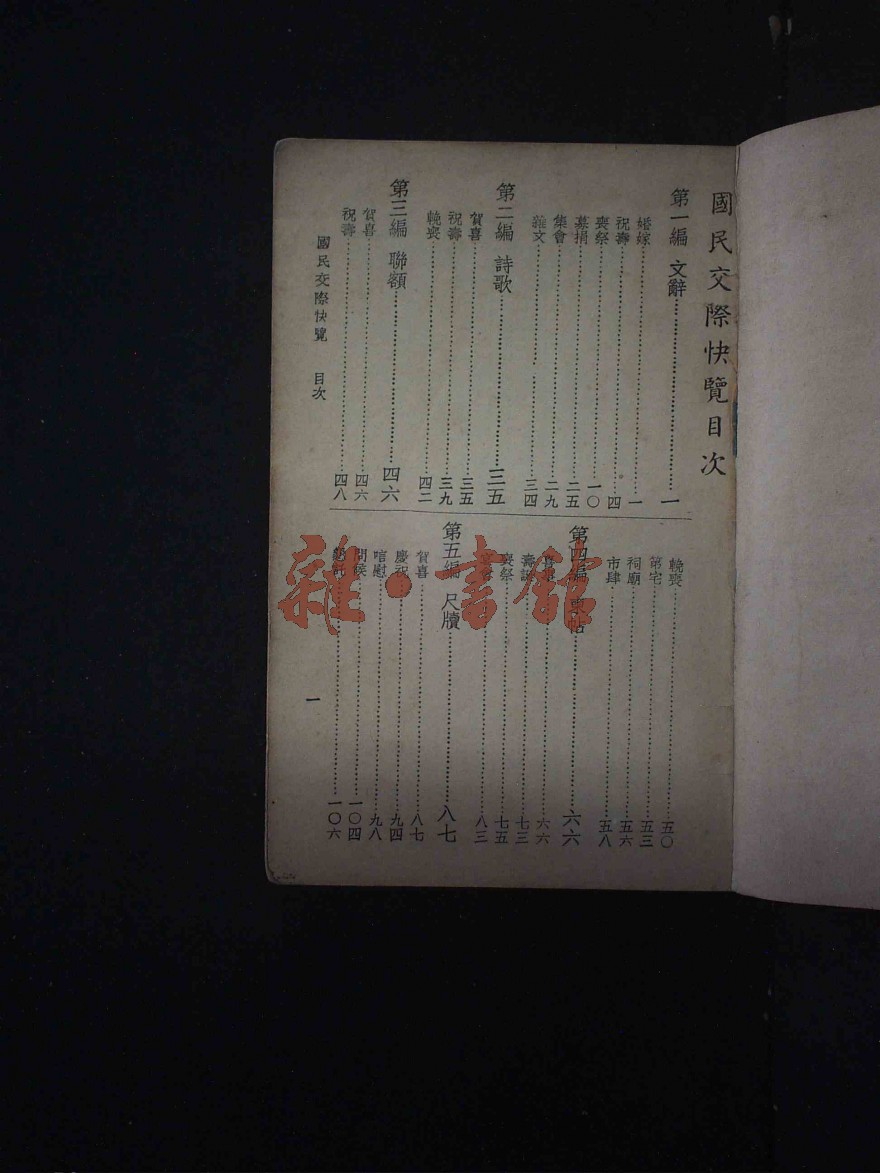 國民交際快覽目次
第一編 文辭 一
婚嫁 一
祝壽 四
喪祭 一〇
募捐 二五
集會 二九
雜文 三四
第二編 詩歌 三五
賀喜 三五
祝壽 三九
輓喪 四二
第三編 聯額 四六
賀喜 四六
祝壽 四八
輓喪 五〇
第宅 五三
祠廟 五六
市肆 五八
第四編 柬帖 六六
六六
壽誕 七三
喪祭 七五
八三
第五編 尺牘 八七
賀喜 八七
慶祝 九四
唁慰 九八
問候 一〇四
一〇六
國民交際快覽 目次
一
雜·書館